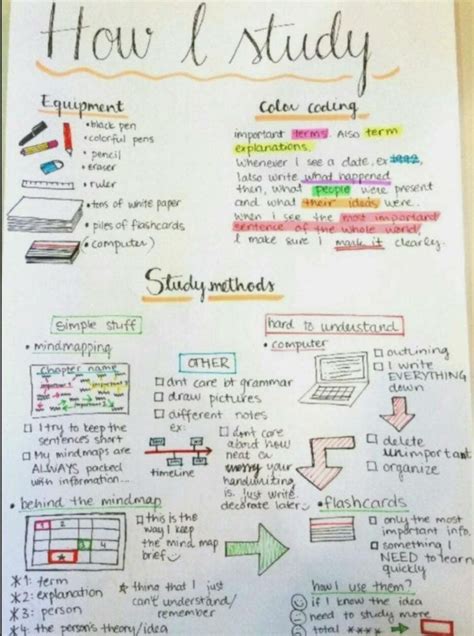 How I study
Equipment
• black pen
• colorful pens
• pencil
• eraser
• ruler
• tons of white paper
• piles of flashcards
(• computer)
Color coding
important terms. Also term
explanations.
Whenever I see a date, ex 1992,
I also write what happened
then, what people were present
and what their ideas were.
When I see the most important
sentence of the whole world,
I make sure I mark it clearly.
Study methods
simple stuff
• mindmapping
chapter name
important 1
important 2
important 3
I try to keep the
sentences short
My mindmaps are
ALWAYS packed
with information....
• behind the mindmap
2
3
4
*
this is the
way I keep
the mind map
brief
*1: term
*2: explanation
*3: person
*4: the person's theory/idea
* thing that I just
can't understand/
remember
OTHER
dont care bt grammar
draw pictures
different notes
ex:
timeline
dont care
about how
neat or
messy your
handwriting
is. Just write.
decorate later
hard to understand
• computer
outlining
I write
EVERYTHING
down
delete
unimportant
organize
• flashcards
only the most
important info.
something I
NEED to learn
quickly
how I use them?
if I know the idea
need to study more
total ****